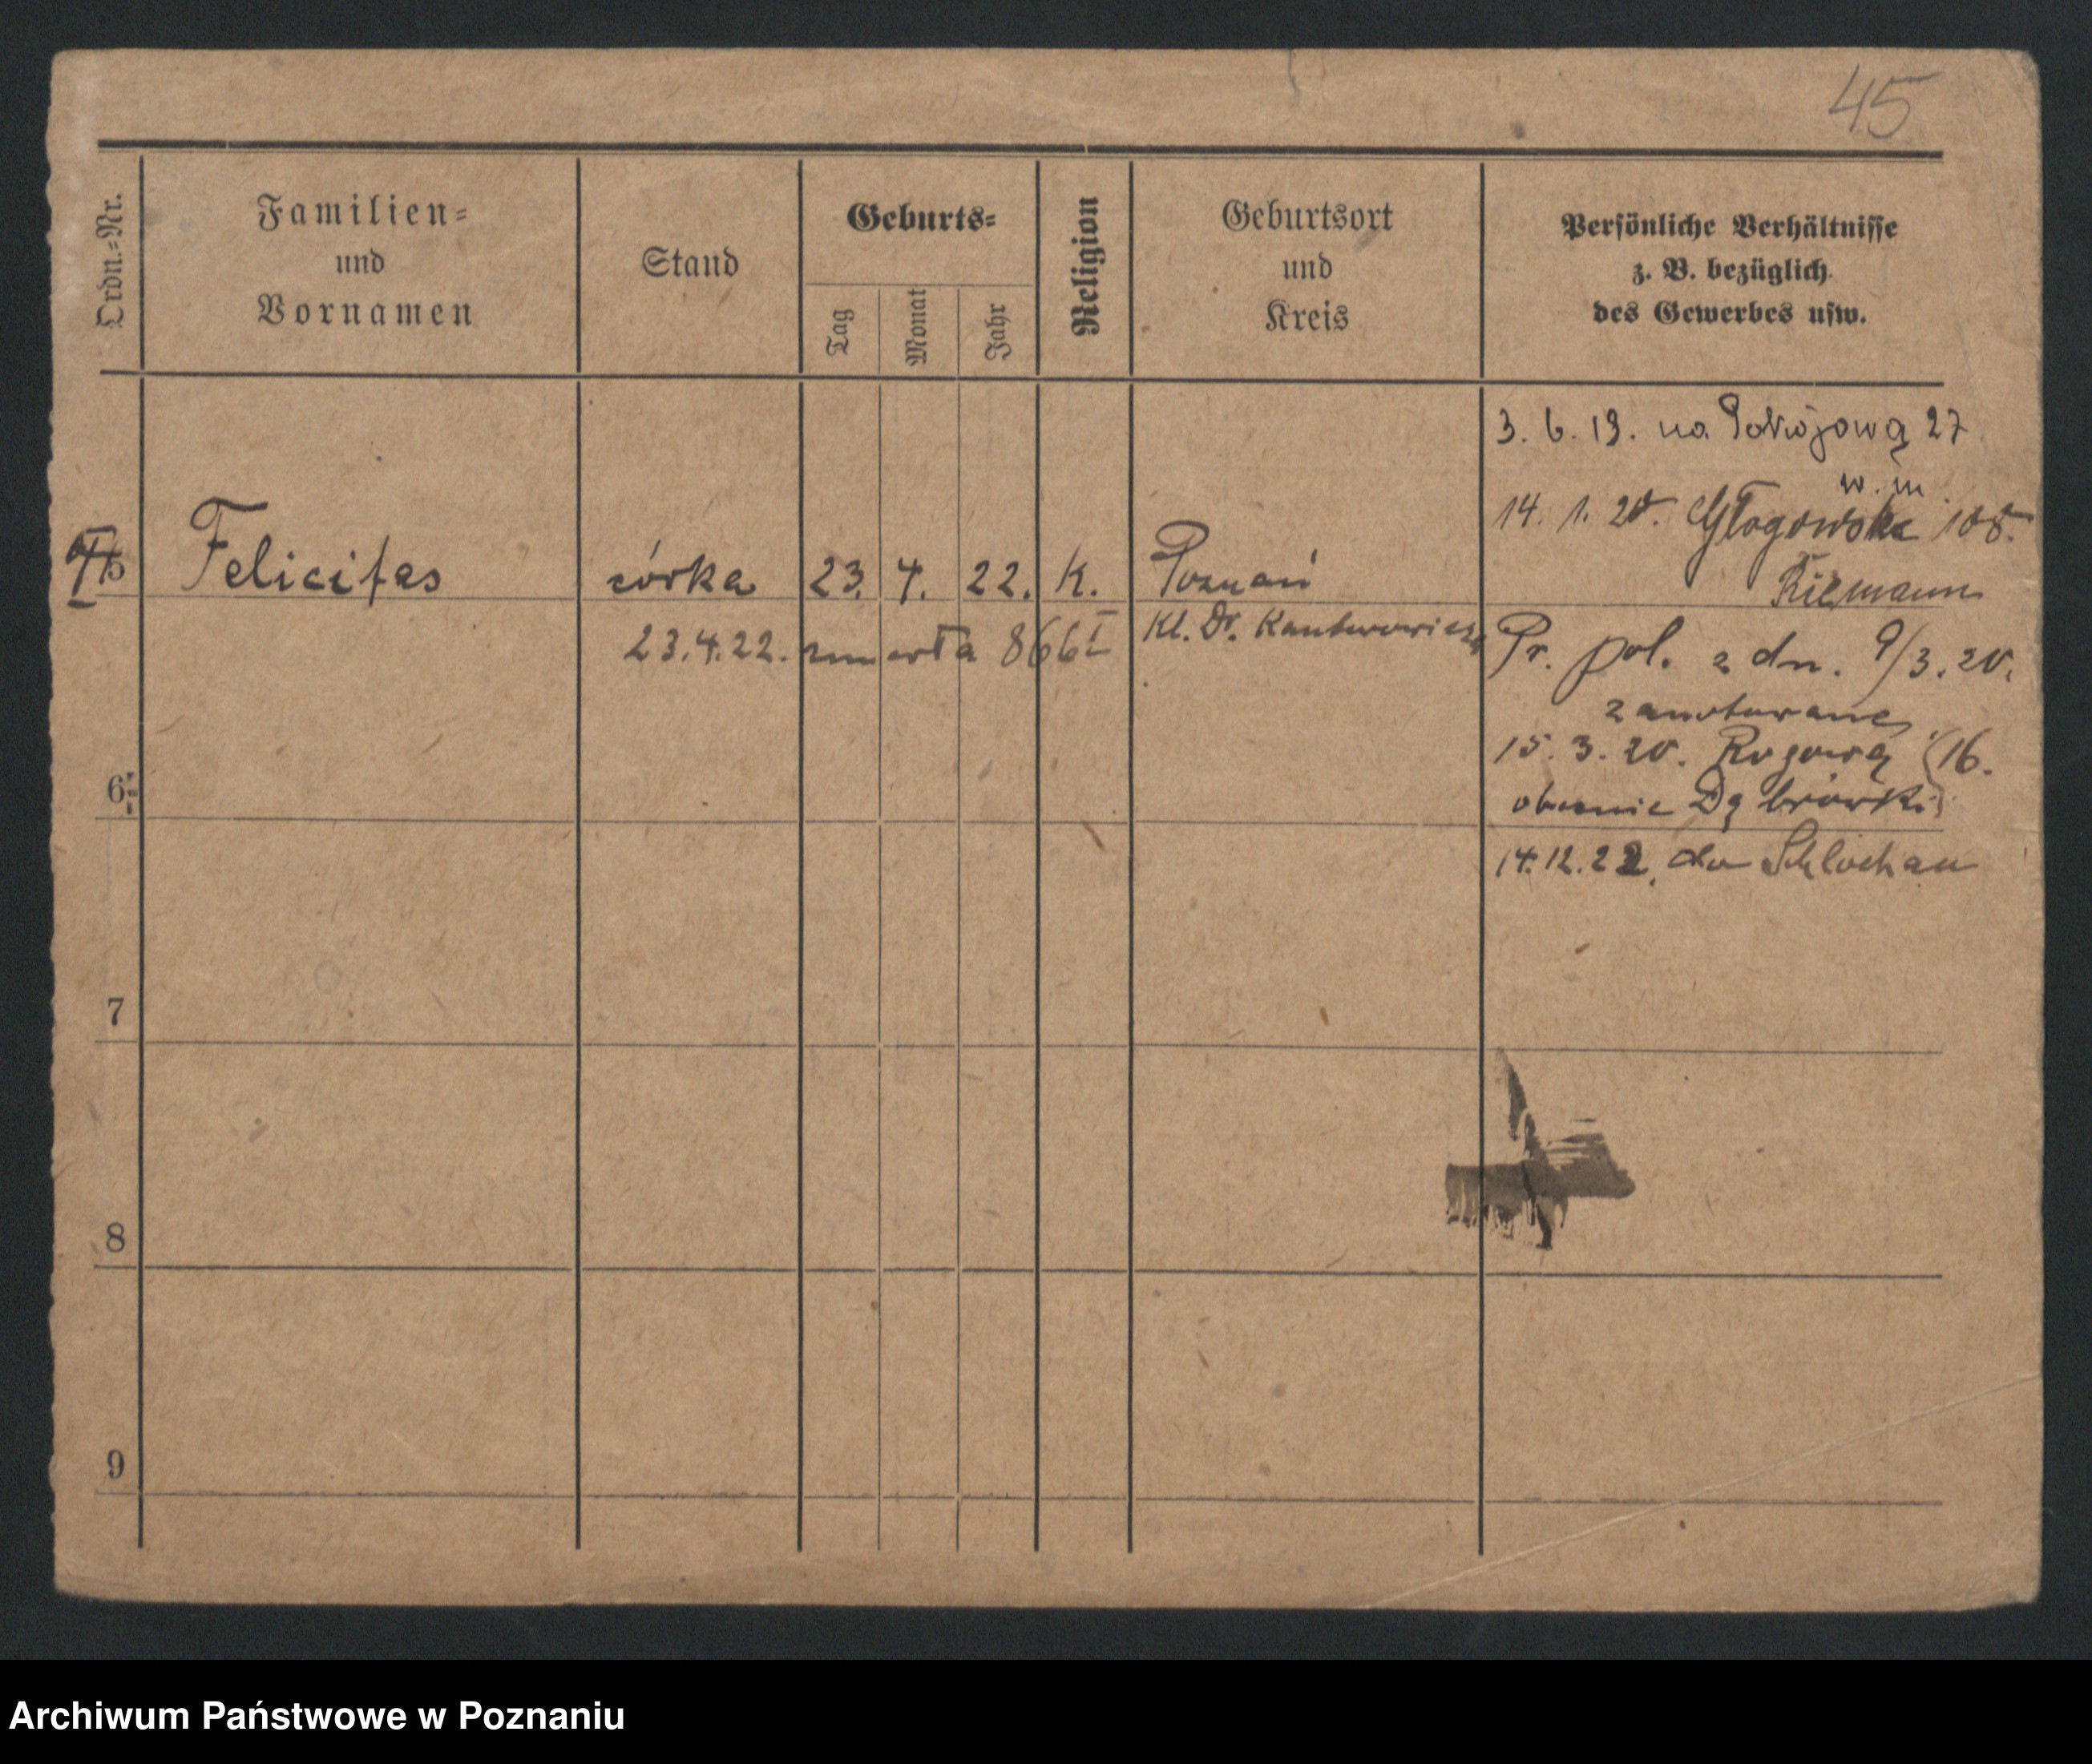 45
Ordn.=Nr.
Familien=
und
Vornamen
Stand
Geburts=
Tag
Monat
Jahr
Religion
Geburtsort
und
Kreis
Persönliche Verhältnisse
z. B. bezüglich
des Gewerbes usw.
3. 6. 19. na Pokojową 27
w. m.
14. 1. 20. Głogowska 108.
5 Felicitas córka 23. 4. 22. K. Poznań
23.4.22. zmarła 866 I Kl. Dr. Kantorowicza
Pr. pol. z dn. 9/3. 20.
zanotowane
15. 3. 20. Rogową (16.
obecnie Dąbrówki)
14.12.22. do Schlochau
6
7
8
9
Archiwum Państwowe w Poznaniu